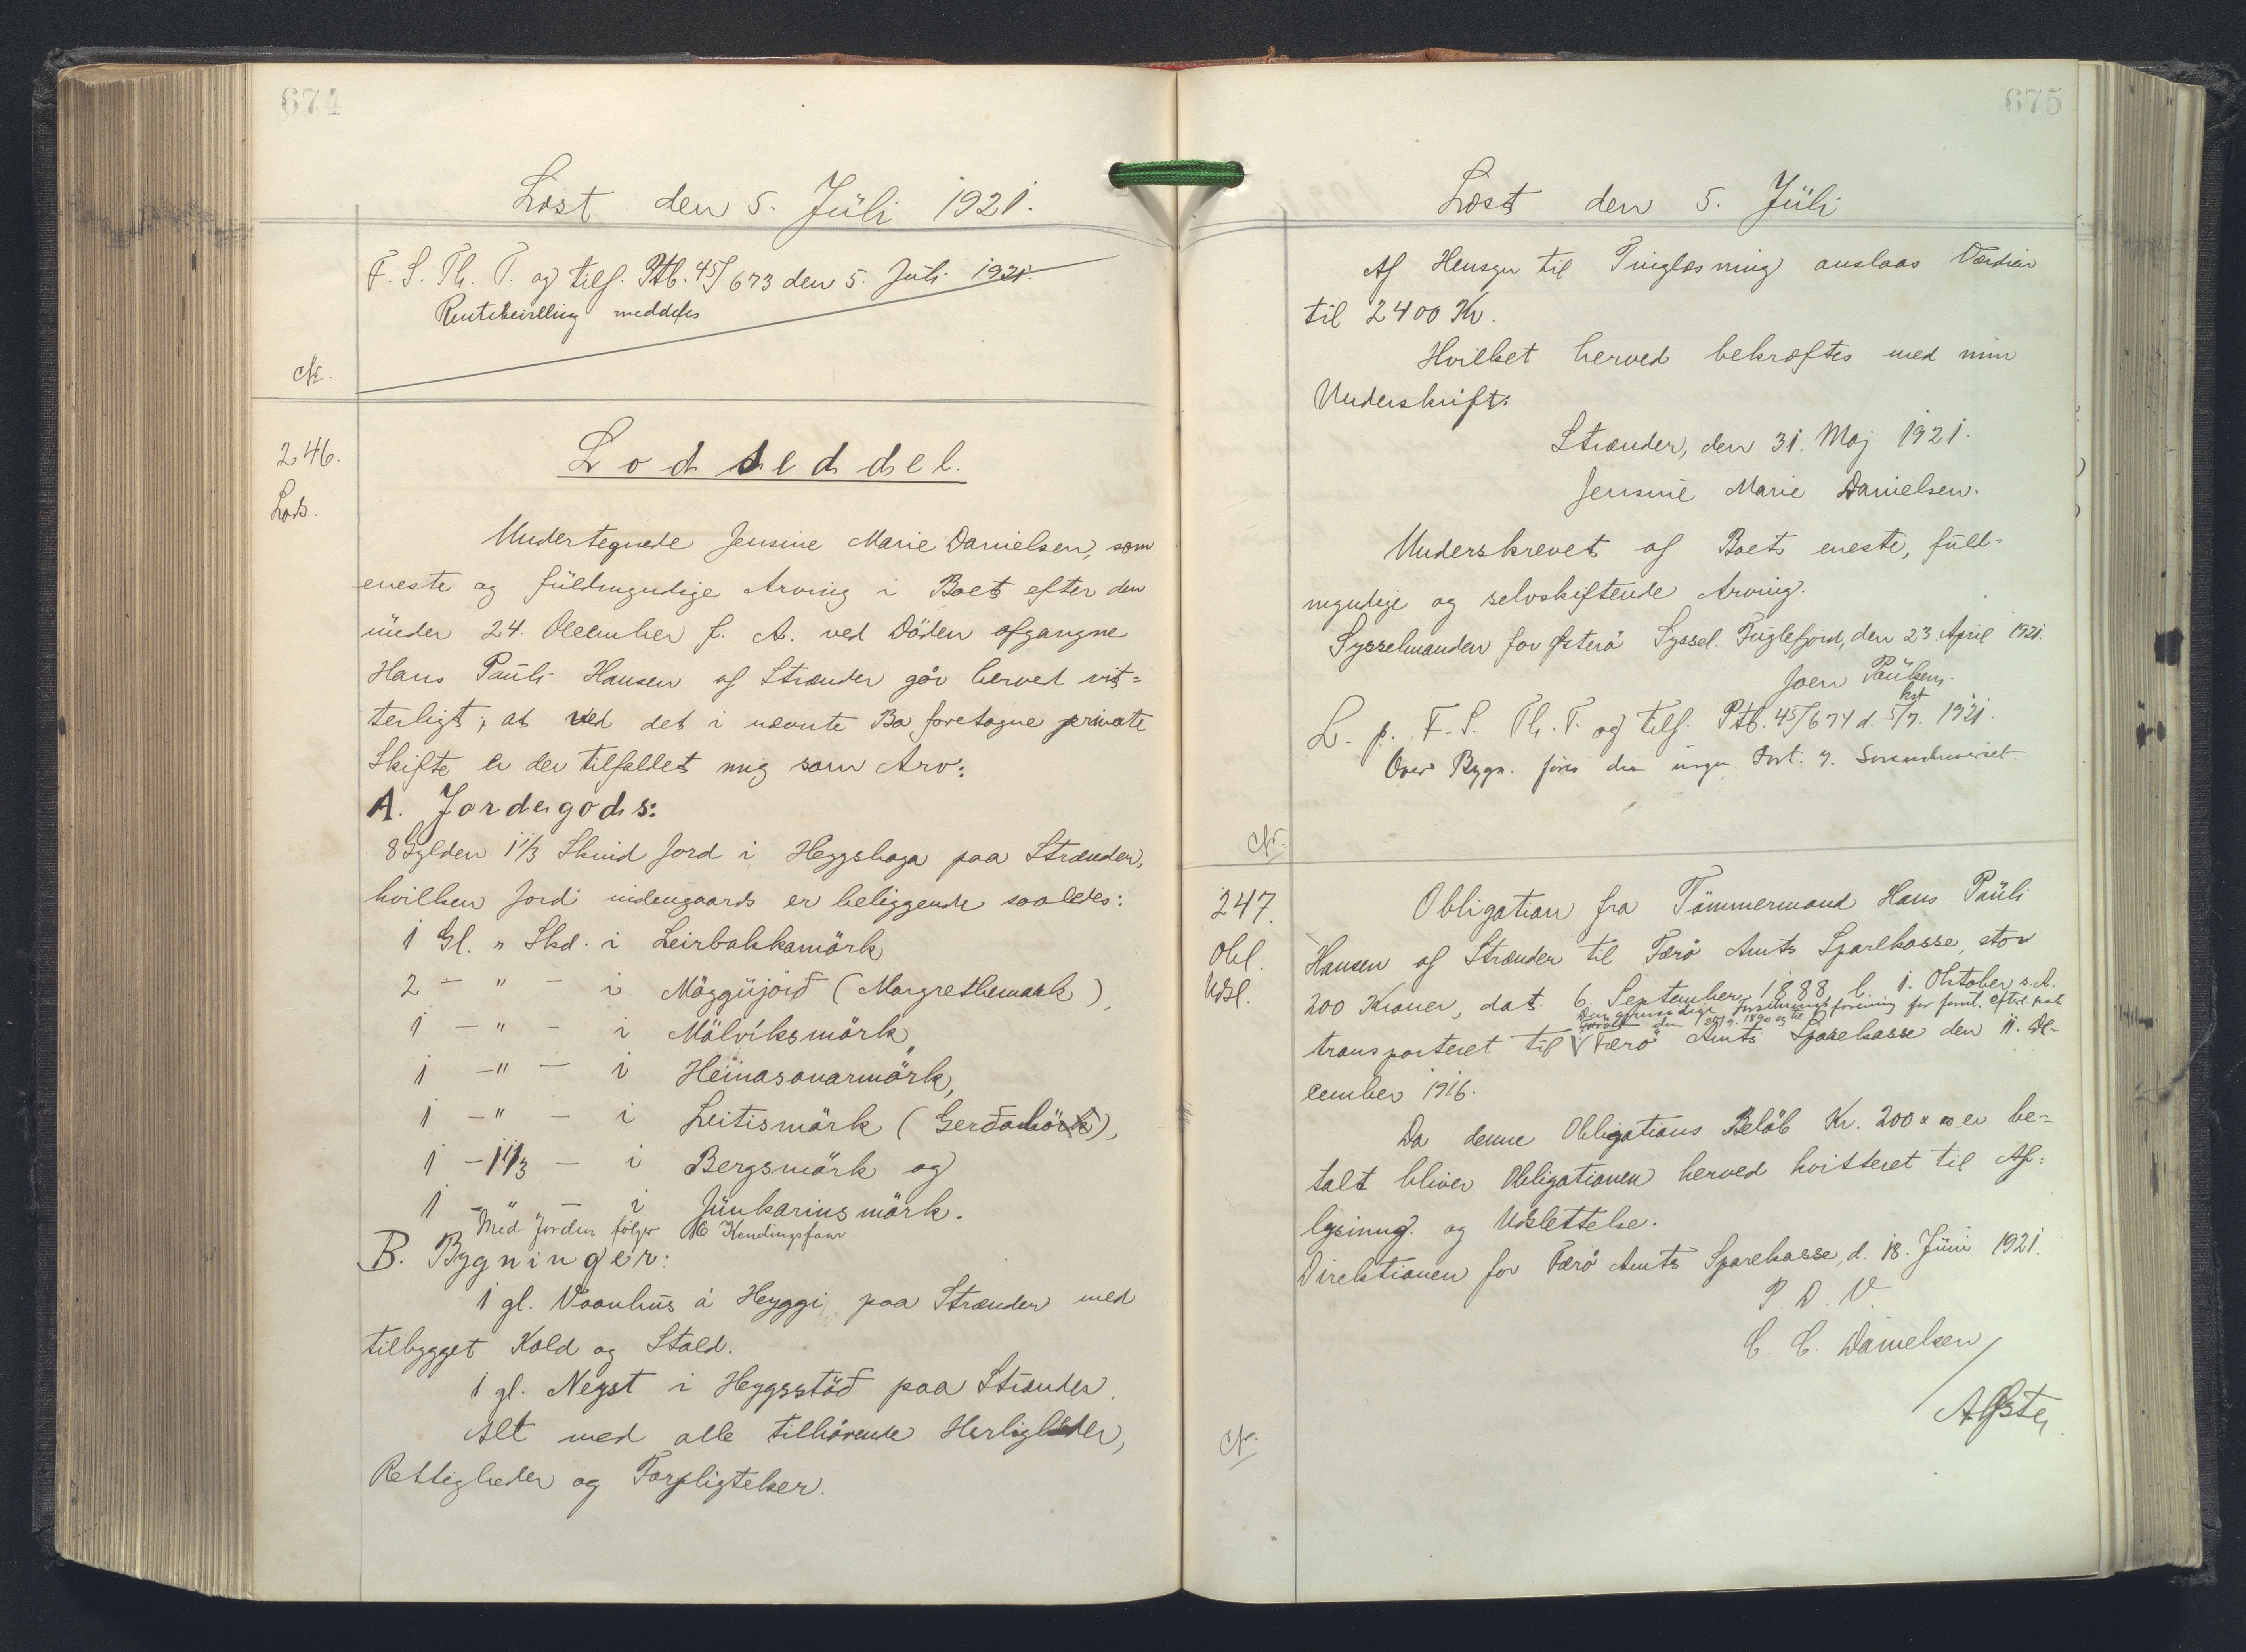 674
Læst den 5. Juli 1921.
F. S. Th. P. og tilf. Ptb. 45/673 den 5. Juli 1921.
Rentebevilling meddeles
Cfr.
246.
Lods.
Lodseddel.
Undertegnede Jensine Marie Danielsen, som
eneste og fuldmyndige Arving i Boet efter den
under 24. December f. A. ved Döden afgangne
Hans Pauli Hansen af Strænder gör herved vit=
terligt, at ved det i nævnte Bo foretagne private
Skifte er der tilfaldet mig som Arv:
A. Jordegods:
8 Gylden 1 1/3 Skind Jord i Heggshaga paa Strænder,
hvilken Jord indengaards er beliggende saaledes:
1 Gl. " Skd. i Leirbakkamörk
2 - " - i Möggujörð (Margrethemark),
1 - " - i Mölvíksmörk,
1 - " - i Heinasonarmörk,
1 - " - i Leitismörk (Gerða),
1 - 1 1/3 - i Bergsmörk og
1 - " - i Junkarinsmörk.
Med Jorden følger 16 Kendingsfaar
B. Bygninger:
1 gl. Vaanhus á Heyggi paa Strænder med
tilbygget Kold og Stald.
1 gl. Neyst i Heygsstöð paa Strænder.
Alt med alle tilhörende Herligheder,
Rettigheder og Forpligtelser.
675
Læst den 5. Juli
Af Hensyn til Tinglæsning anslaas Værdien
til 2400 Kr.
Hvilket herved bekræftes med min
Underskrift:
Strænder, den 31. Maj 1921.
Jensine Marie Danielsen.
Underskrevet af Boets eneste, fuld=
myndige og selvskiftende Arving.
Sysselmanden for Østerö Syssel. Fuglefjord, den 23. April 1921.
Joen Paulsen.
kst
L. p. F. S. Th. P. og tilf. Ptb. 45/674 d. 5/7. 1921.
Over Bygn. föres den ingen Fort.
Cfr.
247.
Obl.
Udsl.
Obligation fra Tömmermand Hans Pauli
Hansen af Strænder til Færö Amts Sparekasse, stor
200 Kroner, dat. 6. September 1888 l. 1. Oktober s. A.
transporteret til Færö Amts Sparekasse den 11. De-
cember 1916.
Da denne Obligations Belöb Kr. 200 " 00 er be=
talt bliver Obligationen herved kvitteret til Af=
lysning og Udslettelse.
Direktionen for Færö Amts Sparekasse, d. 18. Juni 1921.
P. D. V.
C. C. Danielsen
/
Cfr.